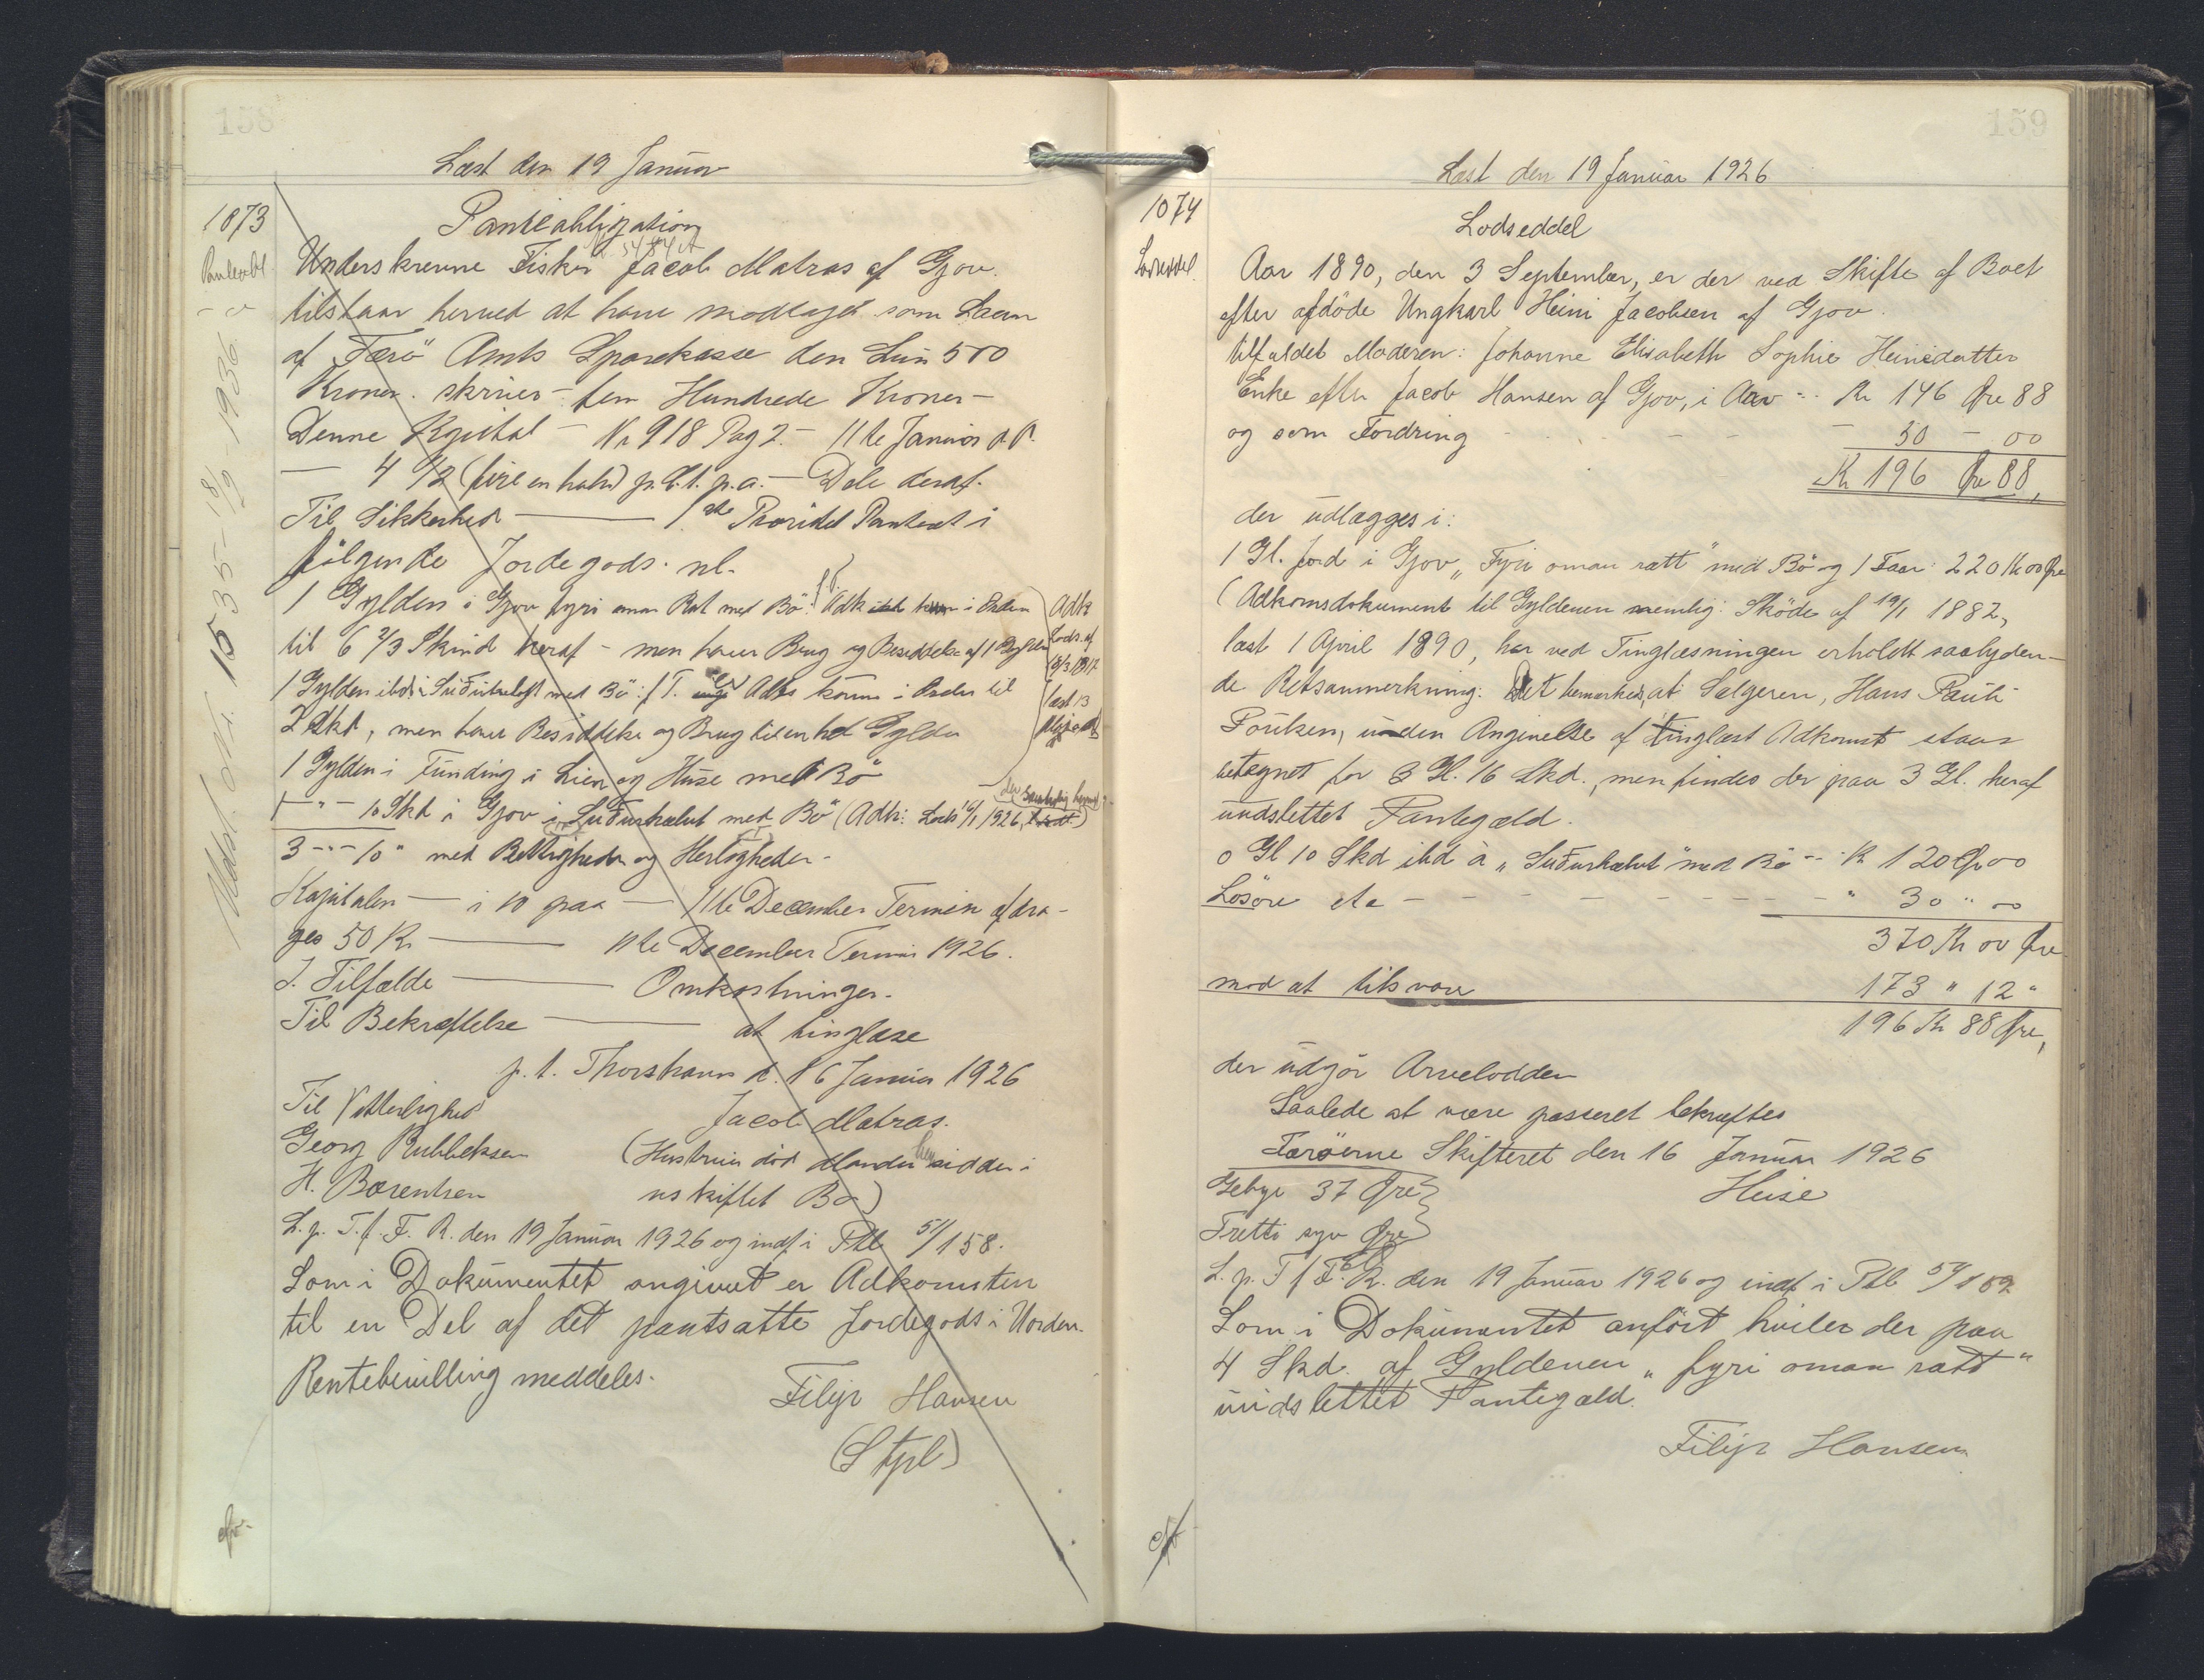 158
Læst den 19 Januar
1073
Panteobl
Panteobligation
Underskrevne Fisker Jacob Matras af Gjov.
tilstaar herved at have modtaget som Laan
af Færö Amts Sparekasse den Sum 500
Kroner. skriver fem Hundrede Kroner -
Denne Kapital - No 918 Pag 2. - 11te Januar d. A.
— 4 1/2 (fire en halv) p. Ct. p.a. - Dele deraf.
Til Sikkerhed — 1ste Prioritet Panteret i
følgende Jordegods. nl.
1 Gylden i Gjov fyri oman Rætt med Bö: f.T. Adk i Orden
til 6 2/3 Skind heraf - men haver Brug og Besiddelse af 1 Gylden
1 Gylden ibd i Suðurhaluft med Bö: f T. Adk komst i Orden til
2 Skd, men haver Besiddelse og Brug til en hel Gylden
Adk
Lods. af
læst 13
1 Gylden i Funding i Lien og Huse med Bö
" - 10 Skd i Gjov i Suðurhælvt med Bö (Adk: Lods 16/1 1926,
3 - " - 10 " med Rettigheder og Herligheder -
Kapitalen — i 10 paa — 11te December Termin afdra-
ges 50 Kr. — 11te December Termin 1926.
I Tilfælde — Omkostninger.
Til Bekræftelse — at tinglæse
p. t. Thorshavn d. 16 Januar 1926
Til Vitterlighed Jacob Matras.
Georg Rubeksen (Hustruen død Manden hensidder i
H. Børentsen uskiftet Bo)
L. p. T. f. F. R. den 19 Januar 1926 og indf i Ptb 51/158.
Som i Dokumentet angivet er Adkomsten
til en Del af det pantsatte Jordegods i Uorden.
Rentebevilling meddeles.
Filip Hansen
(Stpl)
159
Læst den 19 Januar 1926
1074
Lodseddel
Lodseddel
Aar 1890, den 3 September, er der ved Skifte af Boet
efter afdöde Ungkarl Heini Jacobsen af Gjov.
tilfaldet Moderen: Johanne Elisabeth Sophie Heinesdatter
Enke efter Jacob Hansen af Gjov, i Arv - - Kr 146 Øre 88
og som Fordring - - - - - 50 - 00
Kr 196 Øre 88,
der udlægges i:
1 Gl. Jord i Gjov „Fyri oman rætt" med Bö og 1 Faar: 220 Kr 00 Øre
(Adkomsdokument til Gyldenen nemlig: Sköde af 19/1 1882,
læst 1 April 1890, har ved Tinglæsningen erholdt saalyden-
de Retsanmerkning: Det bemærkes, at Sælgeren, Hans Pauli
Poulsen, uden Angivelse af tinglæst Adkomst staar
betegnet for 3 Gl. 16 Skd., men findes der paa 3 Gl. heraf
uudslettet Pantegæld.
0 Gl 10 Skd ibd à „Suðurhælvt" med Bö - - K 120 Ør 00
Løsøre etc - - - - - - - " 30 " 00
370 Kr 00 Øre
mod at tilsvare 173 " 12 "
196 Kr 88 Øre,
der udgör Arvelodden
Saalede at være passeret bekræftes
Færöerne Skifteret den 16 Januar 1926
Gebyr 37 Øre Heise
Tretti syv Øre
L. p. T f F. R. den 19 Januar 1926 og indf i Ptb 51/159
Som i Dokumentet anfört hviler der paa
4 Skd. af Gyldenen „fyri oman rætt"
uudslettet Pantegæld.
Filip Hansen